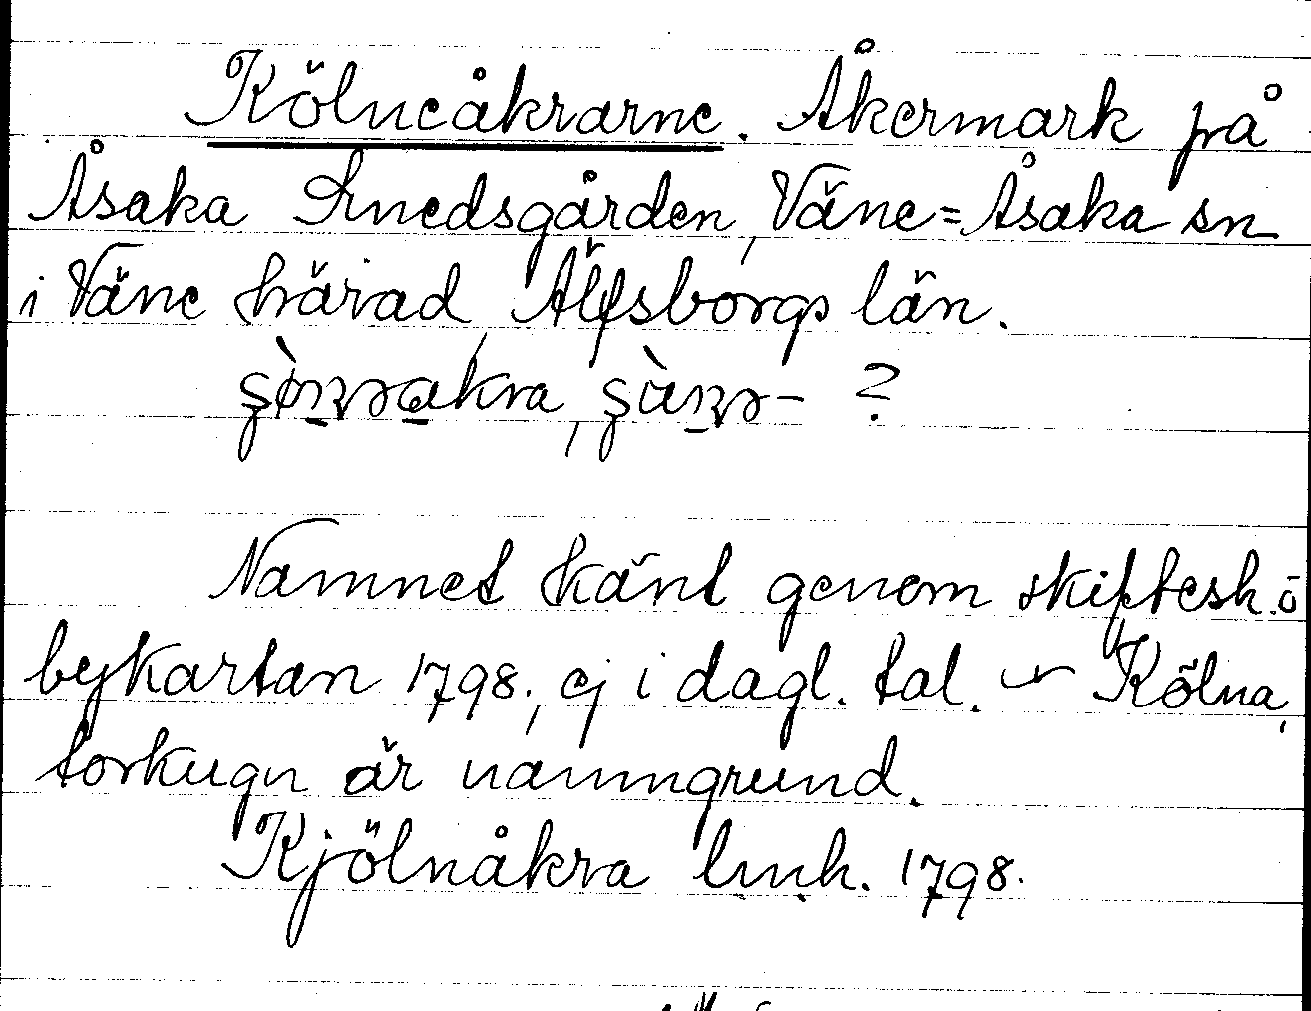 Kölneåkrarne. Åkermark på
Åsaka Smedsgården, Väne=Åsaka sn
i Väne härad, Älfsborgs län.
?
Namnet känt genom skiftesh. ö
bykartan 1798, ej i dagl. tal. – Kölna,
torkugn är namngrund.
Kjölnåkra lmh. 1798.